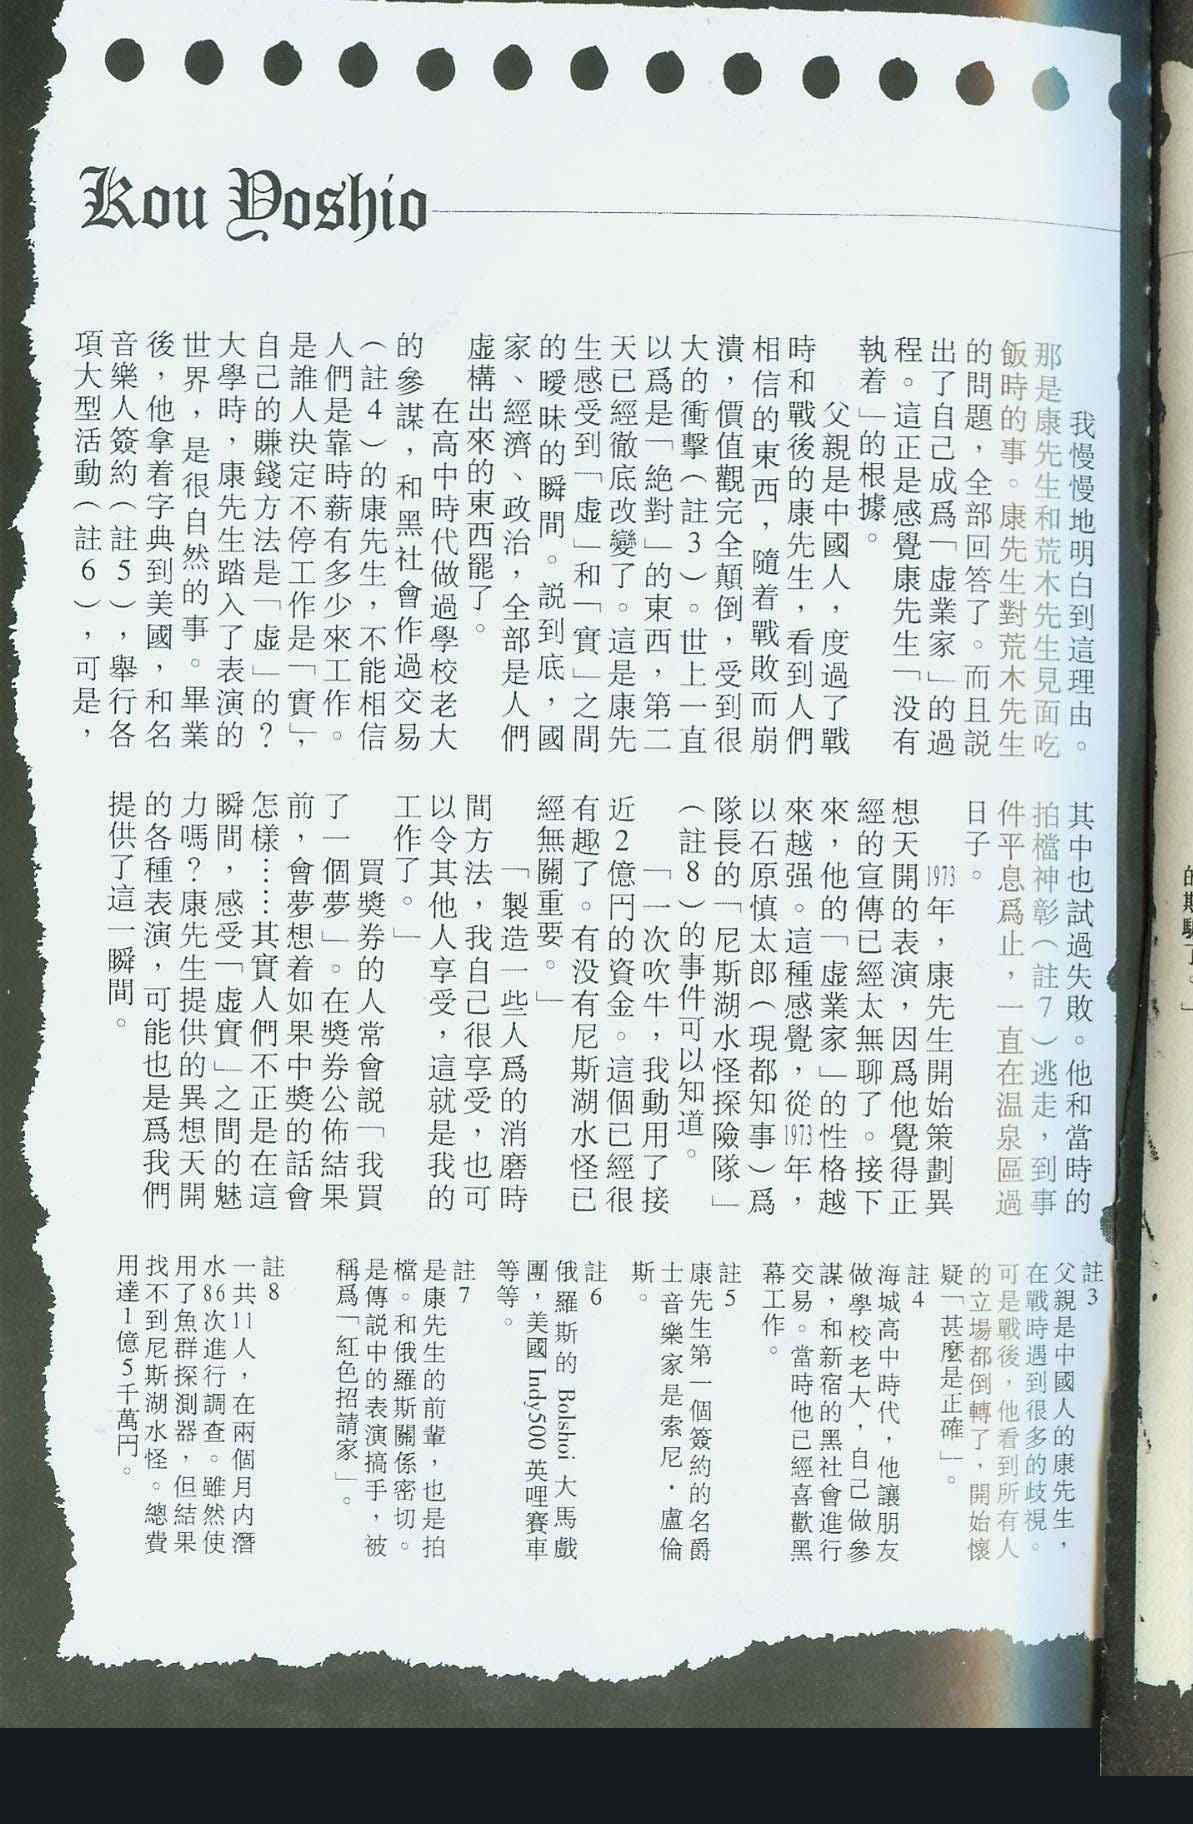 Kou Yoshio
我慢慢地明白到這理由。
那是康先生和荒木先生見面吃
飯時的事。康先生對荒木先生
的問題，全部回答了。而且説
出了自己成爲「虛業家」的過
程。這正是感覺康先生「没有
執着」的根據。
父親是中國人，度過了戰
時和戰後的康先生，看到人們
相信的東西，隨着戰敗而崩
潰，價值觀完全顛倒，受到很
大的衝擊（註3）。世上一直
以爲是「絶對」的東西，第二
天已經徹底改變了。這是康先
生感受到「虛」和「實」之間
的曖昧的瞬間。説到底，國
家、經濟、政治，全部是人們
虛構出來的東西罷了。
在高中時代做過學校老大
的參謀，和黑社會作過交易
（註4）的康先生，不能相信
人們是靠時薪有多少來工作。
是誰人決定不停工作是「實」，
自己的賺錢方法是「虛」的？
大學時，康先生踏入了表演的
世界，是很自然的事。畢業
後，他拿着字典到美國，和名
音樂人簽約（註5），舉行各
項大型活動（註6），可是，
其中也試過失敗。他和當時的
拍檔神彰（註7）逃走，到事
件平息爲止，一直在温泉區過
日子。
1973年，康先生開始策劃異
想天開的表演，因爲他覺得正
經的宣傳已經太無聊了。接下
來，他的「虛業家」的性格越
來越强。這種感覺，從1973年，
以石原慎太郎（現都知事）爲
隊長的「尼斯湖水怪探險隊」
（註8）的事件可以知道。
「一次吹牛，我動用了接
近2億円的資金。這個已經很
有趣了。有没有尼斯湖水怪已
經無關重要。」
「製造一些人爲的消磨時
間方法，我自己很享受，也可
以令其他人享受，這就是我的
工作了。」
買獎券的人常會説「我買
了一個夢」。在獎券公佈結果
前，會夢想着如果中獎的話會
怎樣……其實人們不正是在這
瞬間，感受「虛實」之間的魅
力嗎？康先生提供的異想天開
的各種表演，可能也是爲我們
提供了這一瞬間。
註3
父親是中國人的康先生，
在戰時遇到很多的歧視。
可是戰後，他看到所有人
的立場都倒轉了，開始懷
疑「甚麼是正確」。
註4
海城高中時代，他讓朋友
做學校老大，自己做參
謀，和新宿的黑社會進行
交易。當時他已經喜歡黑
幕工作。
註5
康先生第一個簽約的名爵
士音樂家是索尼·盧倫
斯。
註6
俄羅斯的 Bolshoi 大馬戲
團，美國 Indy500 英哩賽車
等等。
註7
是康先生的前輩，也是拍
檔。和俄羅斯關係密切。
是傳説中的表演搞手，被
稱爲「紅色招請家」。
註8
一共11人，在兩個月内潛
水86次進行調查。雖然使
用了魚群探測器，但結果
找不到尼斯湖水怪。總費
用達1億5千萬円。